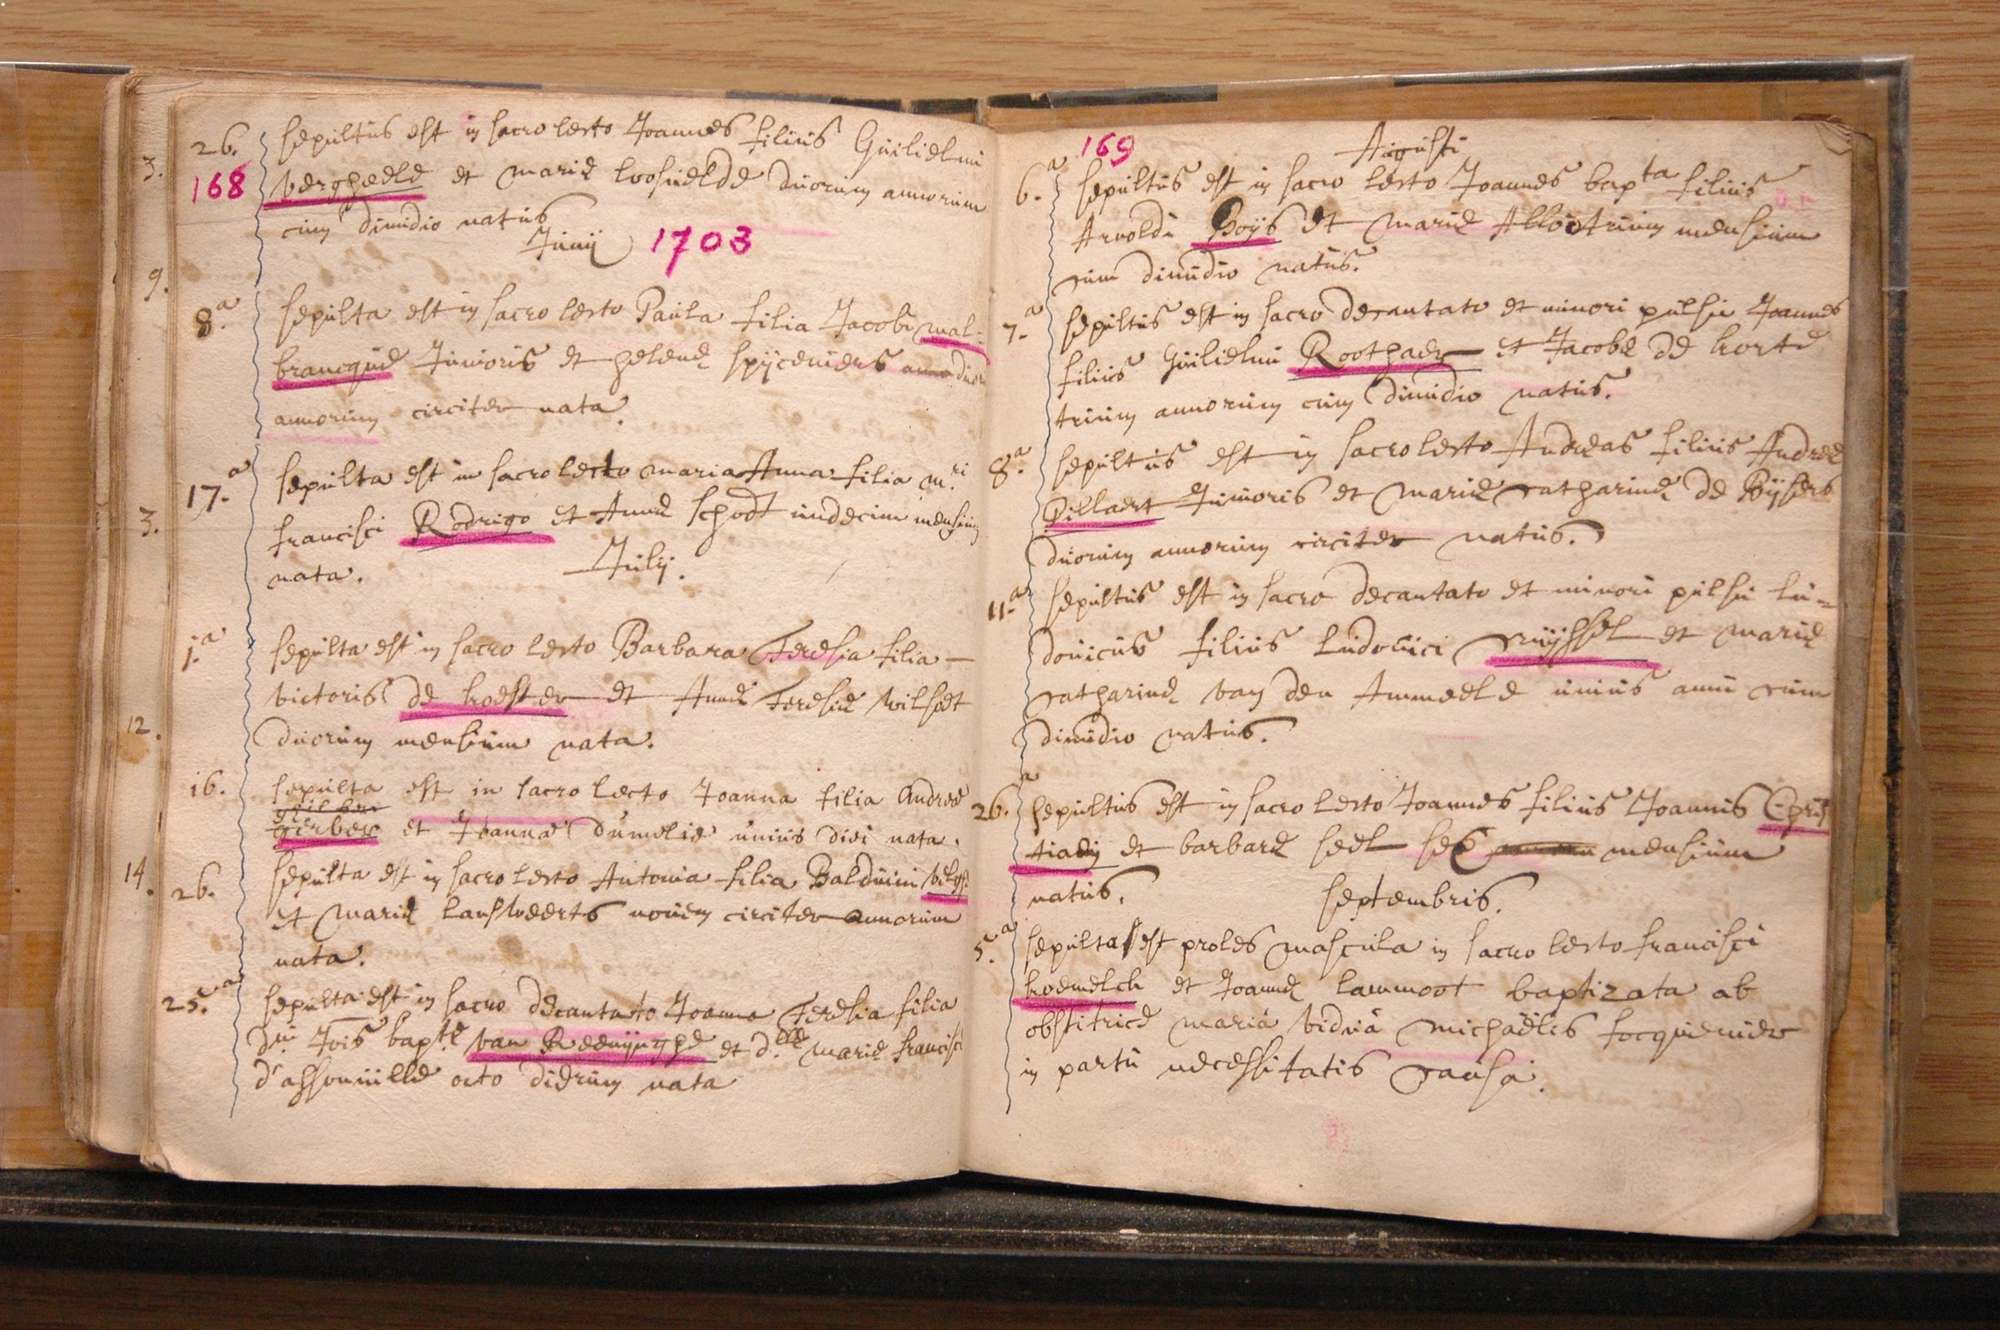 26. sepultus est in sacro lecto Joannes filius Guilielmi
168 vergheele et mariæ loosuelde duorum annorum
cum dimidio natus
Junij 1703
8.a sepulta est in sacro lecto Paula filia Jacobi mal-
brancque Junioris et helenæ spijceniers duor
annorum circiter nata.
17.a sepulta est in sacro lecto maria Anna filia m.ri
francisci Rodrigo et Annæ schodt undecim mensium
nata.
Julij.
1.a sepulta est in sacro lecto Barbara Teresia filia
victoris de koester et Annæ Teresiæ wilset
duorum mensium nata.
16. sepulta est in sacro lecto Joanna filia Andreæ
gerber et Joannæ dumelie unius diei nata.
26. sepulta est in sacro lecto Antonia filia Balduini
et mariæ lansweerts novem circiter annorum
nata.
25.a sepulta est in sacro decantato Joanna Teresia filia
Dni Jois bapte van Reenijnghe et d.lle mariæ francisci
d'assonuille octo dierum nata
3.
9.
3.
12.
14.
169
Augusti
6.a sepultus est in sacro lecto Joannes bapta filius
Arnoldi Boijs et mariæ Allo trium mensium
cum dimidio natus.
7.a sepultus est in sacro decantato et minori pulsu Joannes
filius Guilielmi Roothaer et Jacobæ de korte
trium annorum cum dimidio natus.
8.a sepultus est in sacro lecto Andreas filius Andreæ
Pillaert Junioris et mariæ catharinæ de Buijsers
duorum annorum circiter natus.
11.a sepultus est in sacro decantato et minori pulsu lu-
douicus filius Ludouici ruijssel et mariæ
catharinæ van den Ammeele unius anni cum
dimidio natus.
26.a sepultus est in sacro lecto Joannes filius Joannis Chris
tiaen et barbaræ seel sex mensium
natus.
septembris.
5.a sepulta est proles mascula in sacro lecto francisci
koemelck et Joannæ lammoot baptizata ab
obstitrice maria vidua michaëlis focquenier
in partu necessitatis causa.